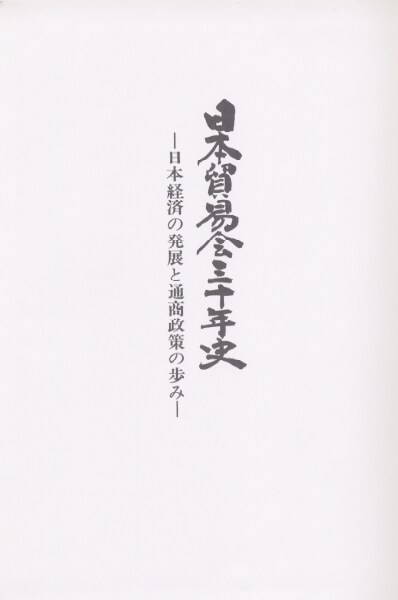 日本貿易会三十年史
―日本経済の発展と通商政策の歩み―